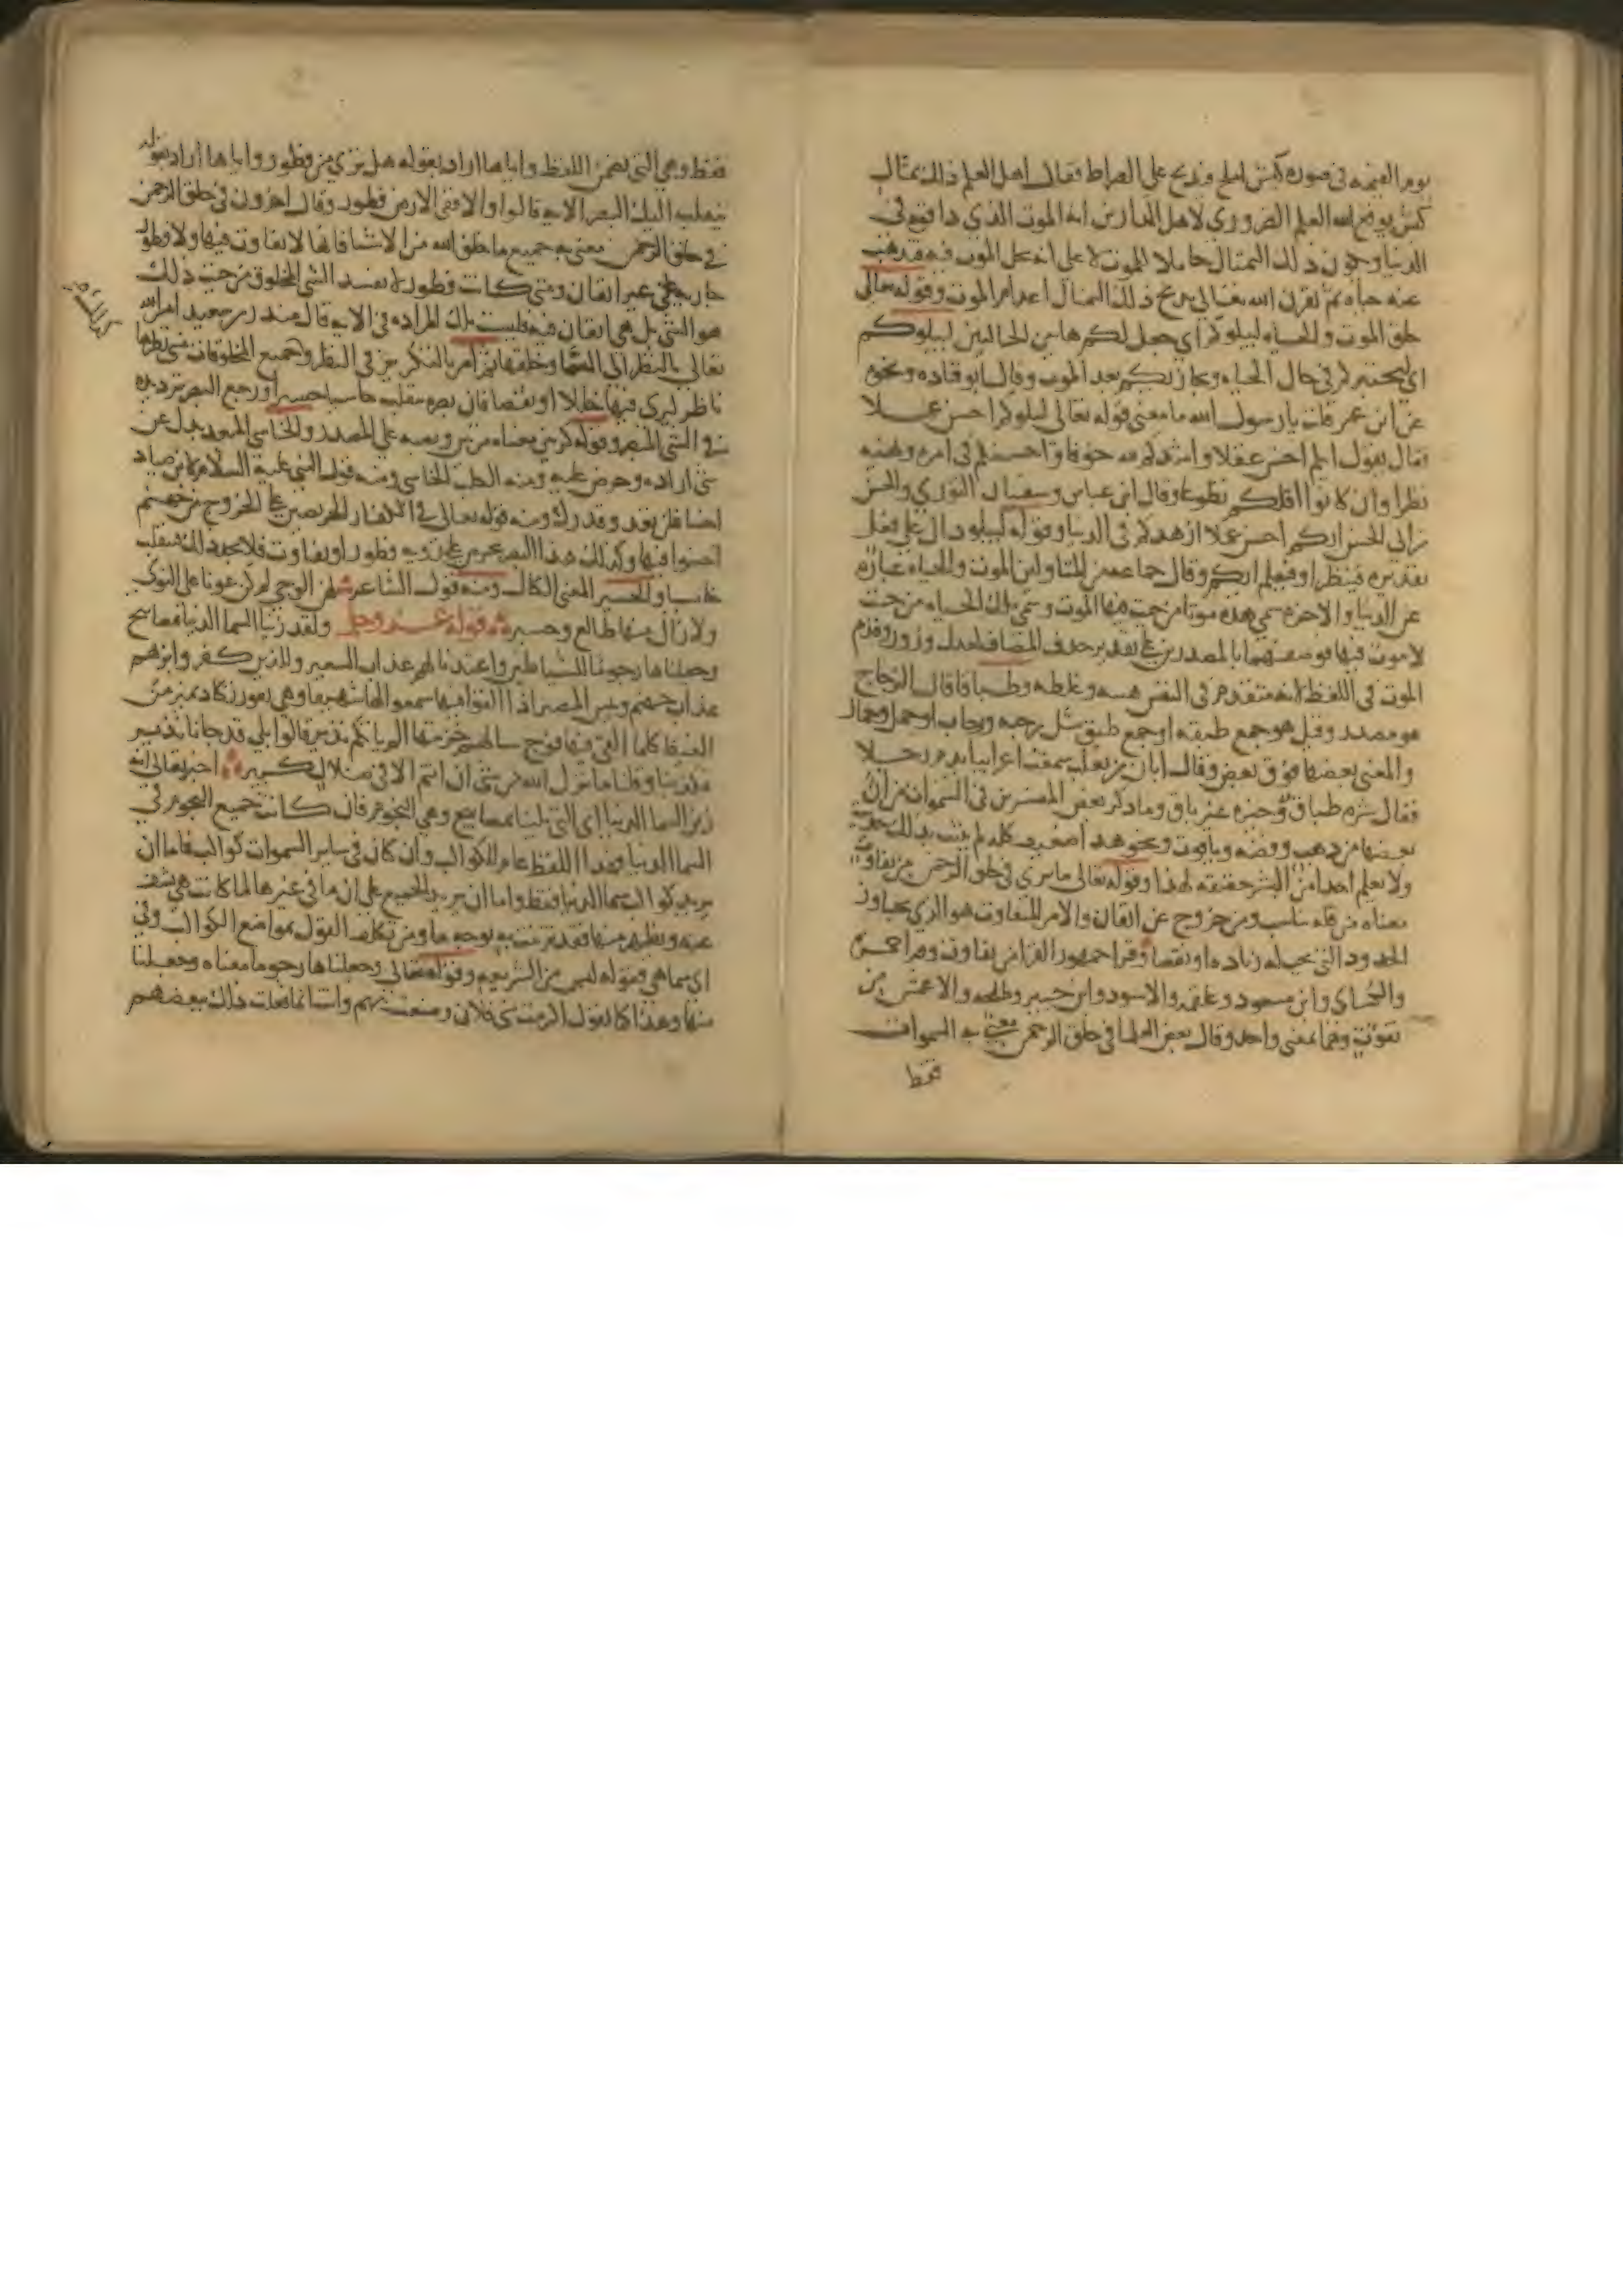 يوم القيمه في صورة كبش املح ويذبح على الصراط فقال اهل العلم ذلك تمثال
كبش يوقع الله العلم الضروري لاهل الدارين انه الموت الذي ذاقوه في
الدنيا ويكون ذلك التمثال حاملا للموت لا على انه يحل الموت فيه فتذهب
عنه حياه ثم يقرن الله تعالى بذبح ذلك التمثال اعدام الموت وقوله تعالى
خلق الموت والحياه ليبلوكم اي جعل لكم هاتين الحالتين ليبلوكم
اي ليختبركم في حال الحياه ويجازيكم بعد الموت وقال ابو قتاده ونحوه
عن ابن عمر قلت يا رسول الله ما معنى قوله تعالى ليبلوكم احسن عملا
فقال يقول ايكم احسن عقلا واشدكم لله خوفا واحسنكم في امره ونهيه
نظرا وان كانوا اقلكم تطوعا وقال ابن عباس وسفيان الثوري والحسن
بن ابي الحسن ايكم احسن عملا ازهدكم في الدنيا وقوله ليبلو دال على فعل
تقديره فينظر او فيعلم ايكم وقال جماعه من المتاولين الموت والحياه عباره
عن الدنيا والاخره سمي هذه موتا من حيث فيها الموت وسمي تلك الحياه من حيث
لا موت فيها فوصفهما بالمصدرين على تقدير حذف المضاف كعدل وزور وقدم
الموت في اللفظ لانه متقدم في النفس هيبه وغلظه وطباقا قال الزجاج
هو مصدر وقيل هو جمع طبقه او جمع طبق مثل رحبه ورحاب او جمل وجمال
والمعنى بعضها فوق بعض وقال ابان بن تغلب سمعت اعرابيا يذم رجلا
فقال شره طباق وخيره غير باق وما ذكر بعض المفسرين في السموات من ان
بعضها من ذهب وفضه وياقوت ونحو هذا ضعيف كله لم يثبت بذلك حديث
ولا يعلم احد من البشر حقيقه لهذا وقوله تعالى ما ترى في خلق الرحمن من تفاوت
معناه من قله تناسب ومن خروج عن اتقان والامر المتفاوت هو الذي يجاوز
الحدود التي تجب له زياده او نقصا وقرا جمهور القرا من تفاوت وقرا حمزه
والكساي وابن مسعود وعلقمه والاسود وابن جبير وطلحه والاعمش من
تفوت وهما بمعنى واحد وقال بعض العلما في خلق الرحمن يعني به السموات
فقط
فقط وهي التي تضمن اللفظ واياها اراد بقوله هل ترى من فطور واياها اراد بقوله
ينقلب اليك البصر الايه قالوا والا ففي الارض فطور وقال اخرون في خلق الرحمن
يعني به جميع ما خلق الله من الاشيا فانها لا تفاوت فيها ولا فطور
جاريه على غير اتقان ومتى كانت فطور لا تفسد الشي المخلوق من حيث ذلك
هو الشي بل هي اتقان فيه فليست تلك المراده في الايه قال منذر بن سعيد امر الله
تعالى بالنظر الى السما وخلقها ثم امر بالتكرير في النظر وجميع المخلوقات متى نظرها
ناظر ليرى فيها خللا او نقصا فان بصره ينقلب خاسيا حسيرا ورجع البصر ترديده
في الشي المبصر وقوله كرتين معناه مرتين ونصبه على المصدر والخاسي المبعد بذل عن
شي اراده وحرص عليه ومنه الكلب الخاسي ومنه قول النبي عليه السلام لابن صياد
اخسا فلن تعدو قدرك ومنه قوله تعالى في الكفار الحريصين على الخروج من جهنم
اخسوا فيها وكذلك هذا البصر يحرص على رويه فطور او تفاوت فلا يجد ذلك فينقلب
خاسيا والحسير المعنى الكال ومنه قول الشاعر لهن الوجى لم كن عونا على النوى
ولا زال منها ظالع وحسير قوله عز وجل ولقد زينا السما الدنيا بمصابيح
وجعلناها رجوما للشياطين واعتدنا لهم عذاب السعير وللذين كفروا بربهم
عذاب جهنم وبيس المصير اذا القوا فيها سمعوا لها شهيقا وهي تفور تكاد تميز من
الغيظ كلما القي فيها فوج سالهم خزنتها الم ياتكم نذير قالوا بلى قد جانا نذير
فكذبنا وقلنا ما نزل الله من شي ان انتم الا في ضلال كبير اخبر تعالى انه
زين السما الدنيا اي التي تلينا بمصابيح وهي النجوم فان كانت جميع النجوم في
السما الدنيا فهذا اللفظ عام للكواكب وان كان في ساير السموات كواكب فاما ان
يريد كواكب سما الدنيا فقط واما ان يريد الجميع على ان ما في غيرها لما كانت هي تشف
عنه ويظهر منها فقد تزينت به بوجه ما ومن تكلف القول بمواضع الكواكب وفي
اي سما هي فقوله ليس من الشريعه وقوله تعالى وجعلناها رجوما معناه وجعلنا
منها وهذا كما تقول اكرمت بني فلان وصنعت بهم وانت انما فعلت ذلك ببعضهم